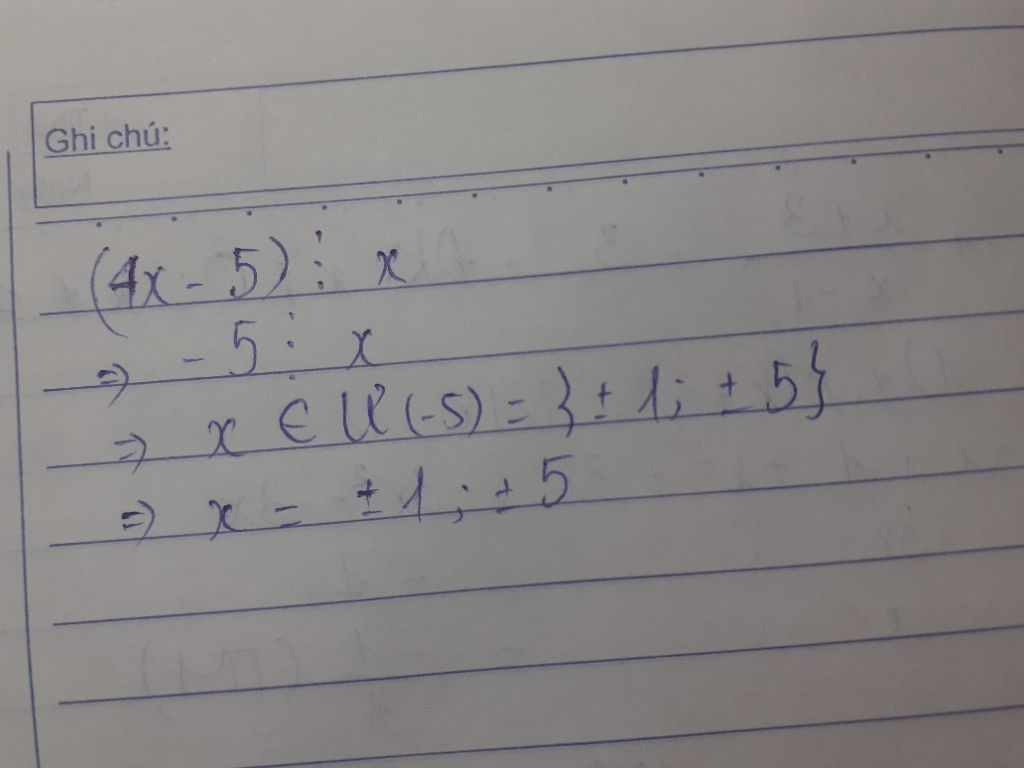 Ghi chú:
(4x - 5) ⋮ x
⇒ - 5 ⋮ x
⇒ x ∈ Ư(-5) = {± 1; ± 5}
⇒ x = ± 1 ; ± 5